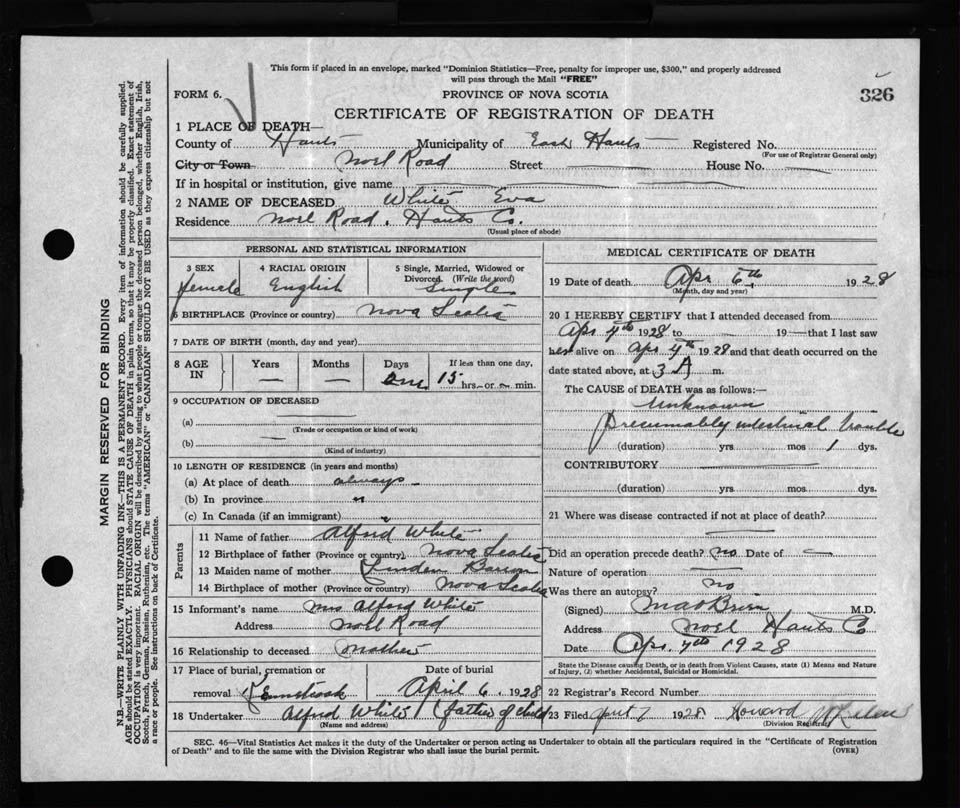 This form if placed in an envelope, marked "Dominion Statistics—Free, penalty for improper use, $300," and properly addressed
will pass through the Mail "FREE"
FORM 6. PROVINCE OF NOVA SCOTIA 326
CERTIFICATE OF REGISTRATION OF DEATH
1 PLACE OF DEATH—
County of Hants Municipality of East Hants Registered No.
(For use of Registrar General only)
City or Town Noel Road Street House No.
If in hospital or institution, give name
2 NAME OF DECEASED White Eva
Residence Noel Road. Hants Co.
(Usual place of abode)
PERSONAL AND STATISTICAL INFORMATION
3 SEX 4 RACIAL ORIGIN 5 Single, Married, Widowed or
Divorced (Write the word)
female English Single
6 BIRTHPLACE (Province or country) Nova Scotia
7 DATE OF BIRTH (month, day and year)
8 AGE IN Years Months Days If less than one day,
— — One 15 hrs. or min.
9 OCCUPATION OF DECEASED
(a)
(Trade or occupation or kind of work)
(b) —
(Kind of industry)
10 LENGTH OF RESIDENCE (in years and months)
(a) At place of death always
(b) In province "
(c) In Canada (if an immigrant)
Parents
11 Name of father Alfred White
12 Birthplace of father (Province or country) Nova Scotia
13 Maiden name of mother
14 Birthplace of mother (Province or country) Nova Scotia
15 Informant's name Mrs Alford White
Address Noel Road
16 Relationship to deceased Mother
17 Place of burial, cremation or Date of burial
removal April 6 1928
18 Undertaker Alfred White (father of child
(Name and address)
MEDICAL CERTIFICATE OF DEATH
19 Date of death Apr 6th 1928
(Month, day and year)
20 I HEREBY CERTIFY that I attended deceased from
Apr 4th 1928 to — 19—that I last saw
her alive on Apr 4th 1928 and that death occurred on the
date stated above, at 3 A m.
The CAUSE of DEATH was as follows:—
Unknown
Presumably intestinal trouble
(duration) yrs mos 1 dys.
CONTRIBUTORY
(duration) yrs mos dys.
21 Where was disease contracted if not at place of death?
Did an operation precede death? no Date of —
Nature of operation
Was there an autopsy? no
(Signed) M.D.
Address Noel Hants Co
Date Apr. 7th 1928
State the Disease causing Death, or in death from Violent Causes, state (1) Means and Nature
of Injury, (2) whether Accidental, Suicidal or Homicidal.
22 Registrar's Record Number
23 Filed April 7 1928 Howard
(Division Registrar)
SEC. 46—Vital Statistics Act makes it the duty of the Undertaker or person acting as Undertaker to obtain all the particulars required in the "Certificate of Registration
of Death" and to file the same with the Division Registrar who shall issue the burial permit. (OVER)
MARGIN RESERVED FOR BINDING
N.B.—WRITE PLAINLY WITH UNFADING INK—THIS IS A PERMANENT RECORD. Every item of information should be carefully supplied.
AGE should be stated EXACTLY. PHYSICIANS should STATE CAUSE OF DEATH in plain terms, so that it may be properly classified. Exact statement of
OCCUPATION is very important. RACIAL ORIGIN will be described by stating to what people or tongue the deceased person belonged, whether English, Irish,
Scotch, French, German, Russian, Ruthenian, etc. The terms "AMERICAN" or "CANADIAN" SHOULD NOT BE USED as they express citizenship but not
a race or people. See instructions on back of Certificate.